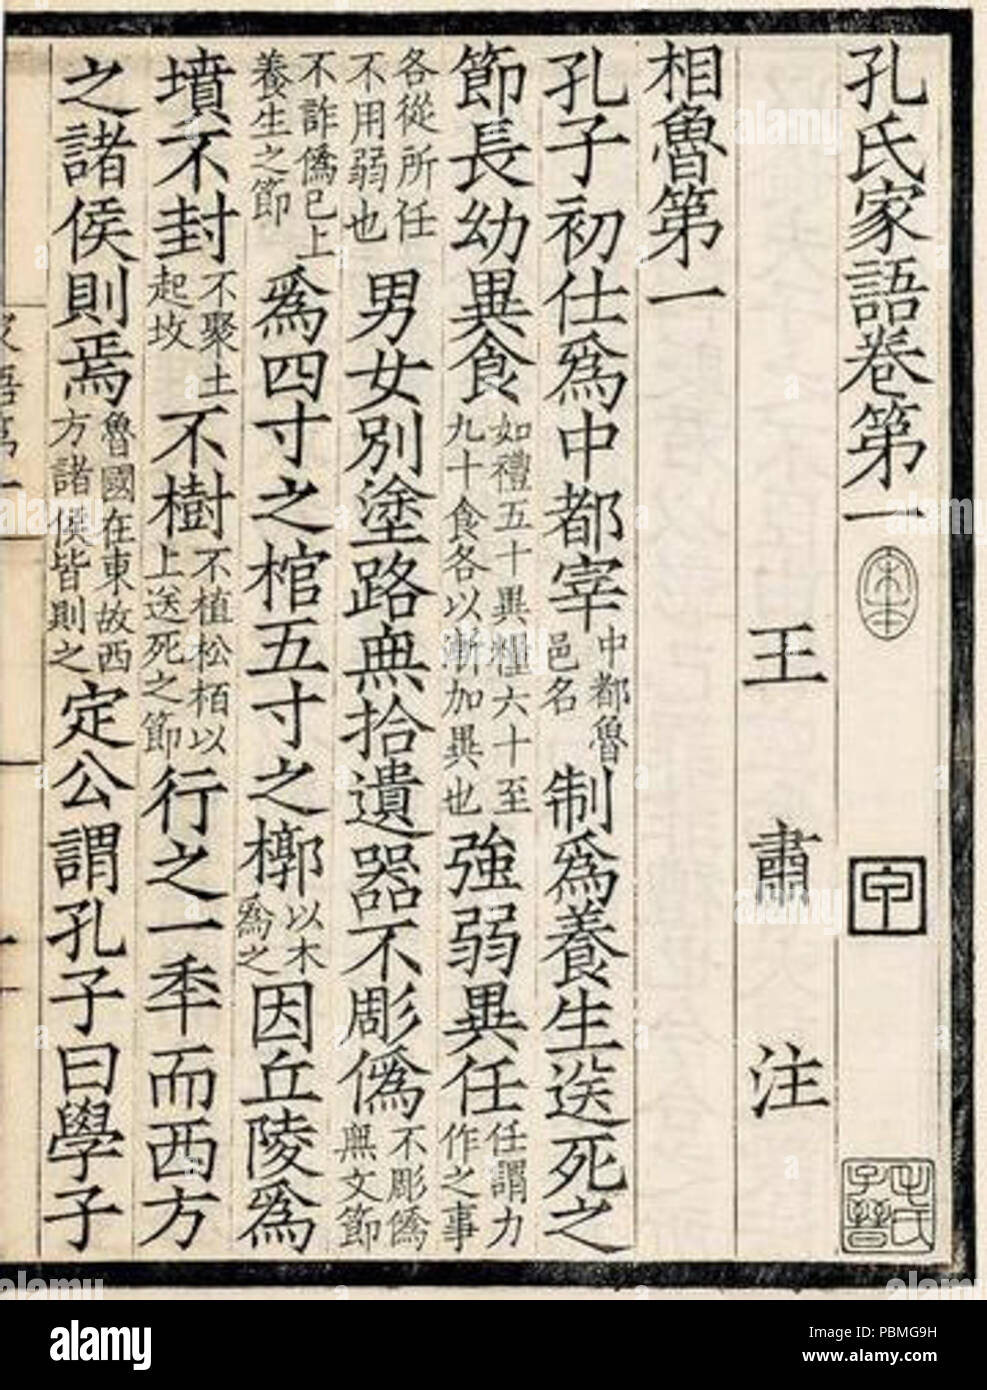 孔氏家語卷第一
王肅注
相魯第一
孔子初仕爲中都宰中都魯邑名制爲養生送死之
節長幼異食如禮五十異糧六十至九十食各以漸加異也強弱異任任謂力作之事
各從所任不用弱也男女別塗路無拾遺器不彫僞不彫僞無文節
不詐僞已上養生之節爲四寸之棺五寸之槨以木爲之因丘陵爲
墳不封不聚土起坟不樹不植松栢以上送死之節行之一秊而西方
之諸侯則焉魯國在東故西方諸侯皆則之定公謂孔子曰學子
甲
毛氏子晉
alamy
alamy
Image ID: PBMG9H
www.alamy.com